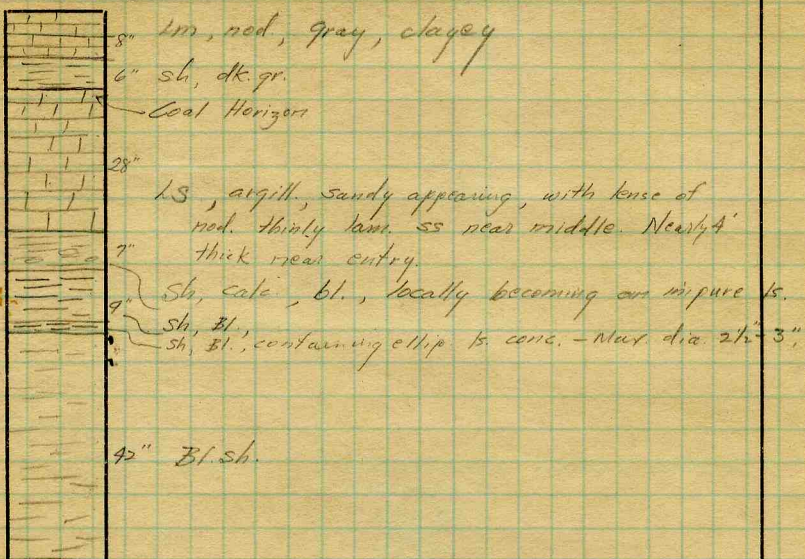 8" Lm, nod, gray, clayey
6" sh, dk. gr.
Coal Horizon
28"
LS, argill., sandy appearing, with lense of
nod. thinly lam. ss near middle. Nearly 4'
thick near entry.
7"
Sh, calc, bl., locally becoming an impure ls.
9" sh, Bl.,
sh, Bl., containing ellip ls. conc. - Max. dia. 2½" - 3",
42" Bl. sh.